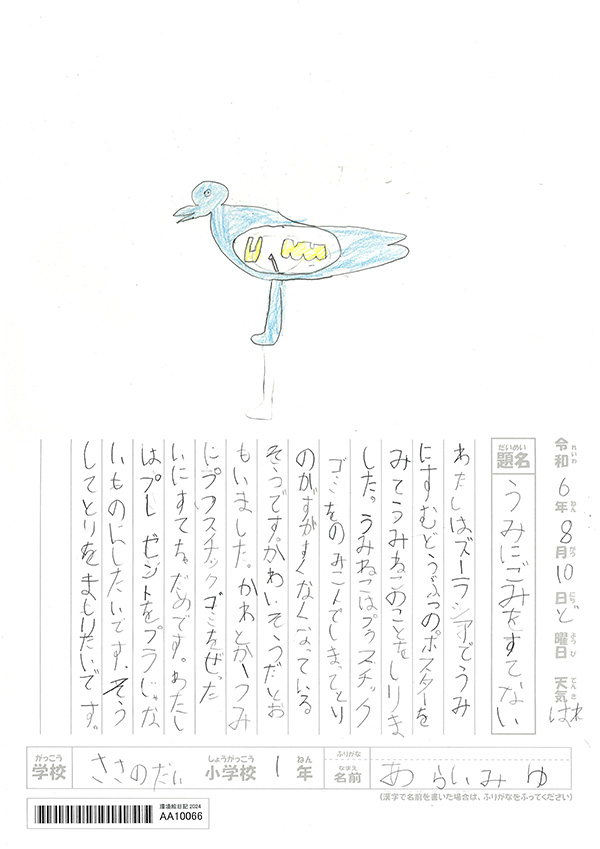 令和6年8月10日ど曜日 天気はれ
れいわ ねん がつ にち ようび てんき
だいめい
題名 うみにごみをすてない
わたしはズーラシアでうみ
にすむどうぶつのポスターを
みてうみねこのことをしりま
した。うみねこはプラスチック
ゴミをのみこんでしまってとり
のかずがすくなくなっている
そうです。かわいそうだとお
もいました。かわとかうみ
にプラスチックゴミをぜった
いにすてちゃだめです。わたし
はプレゼントをプラじゃな
いものにしたいです。そう
してとりをまもりたいです。
がっこう しょうがっこう ねん ふりがな
学校 ささのだい 小学校 1年 なまえ 名前 あらいみゆ
(漢字で名前を書いた場合は、ふりがなをふってください)
環境絵日記 2024
AA10066